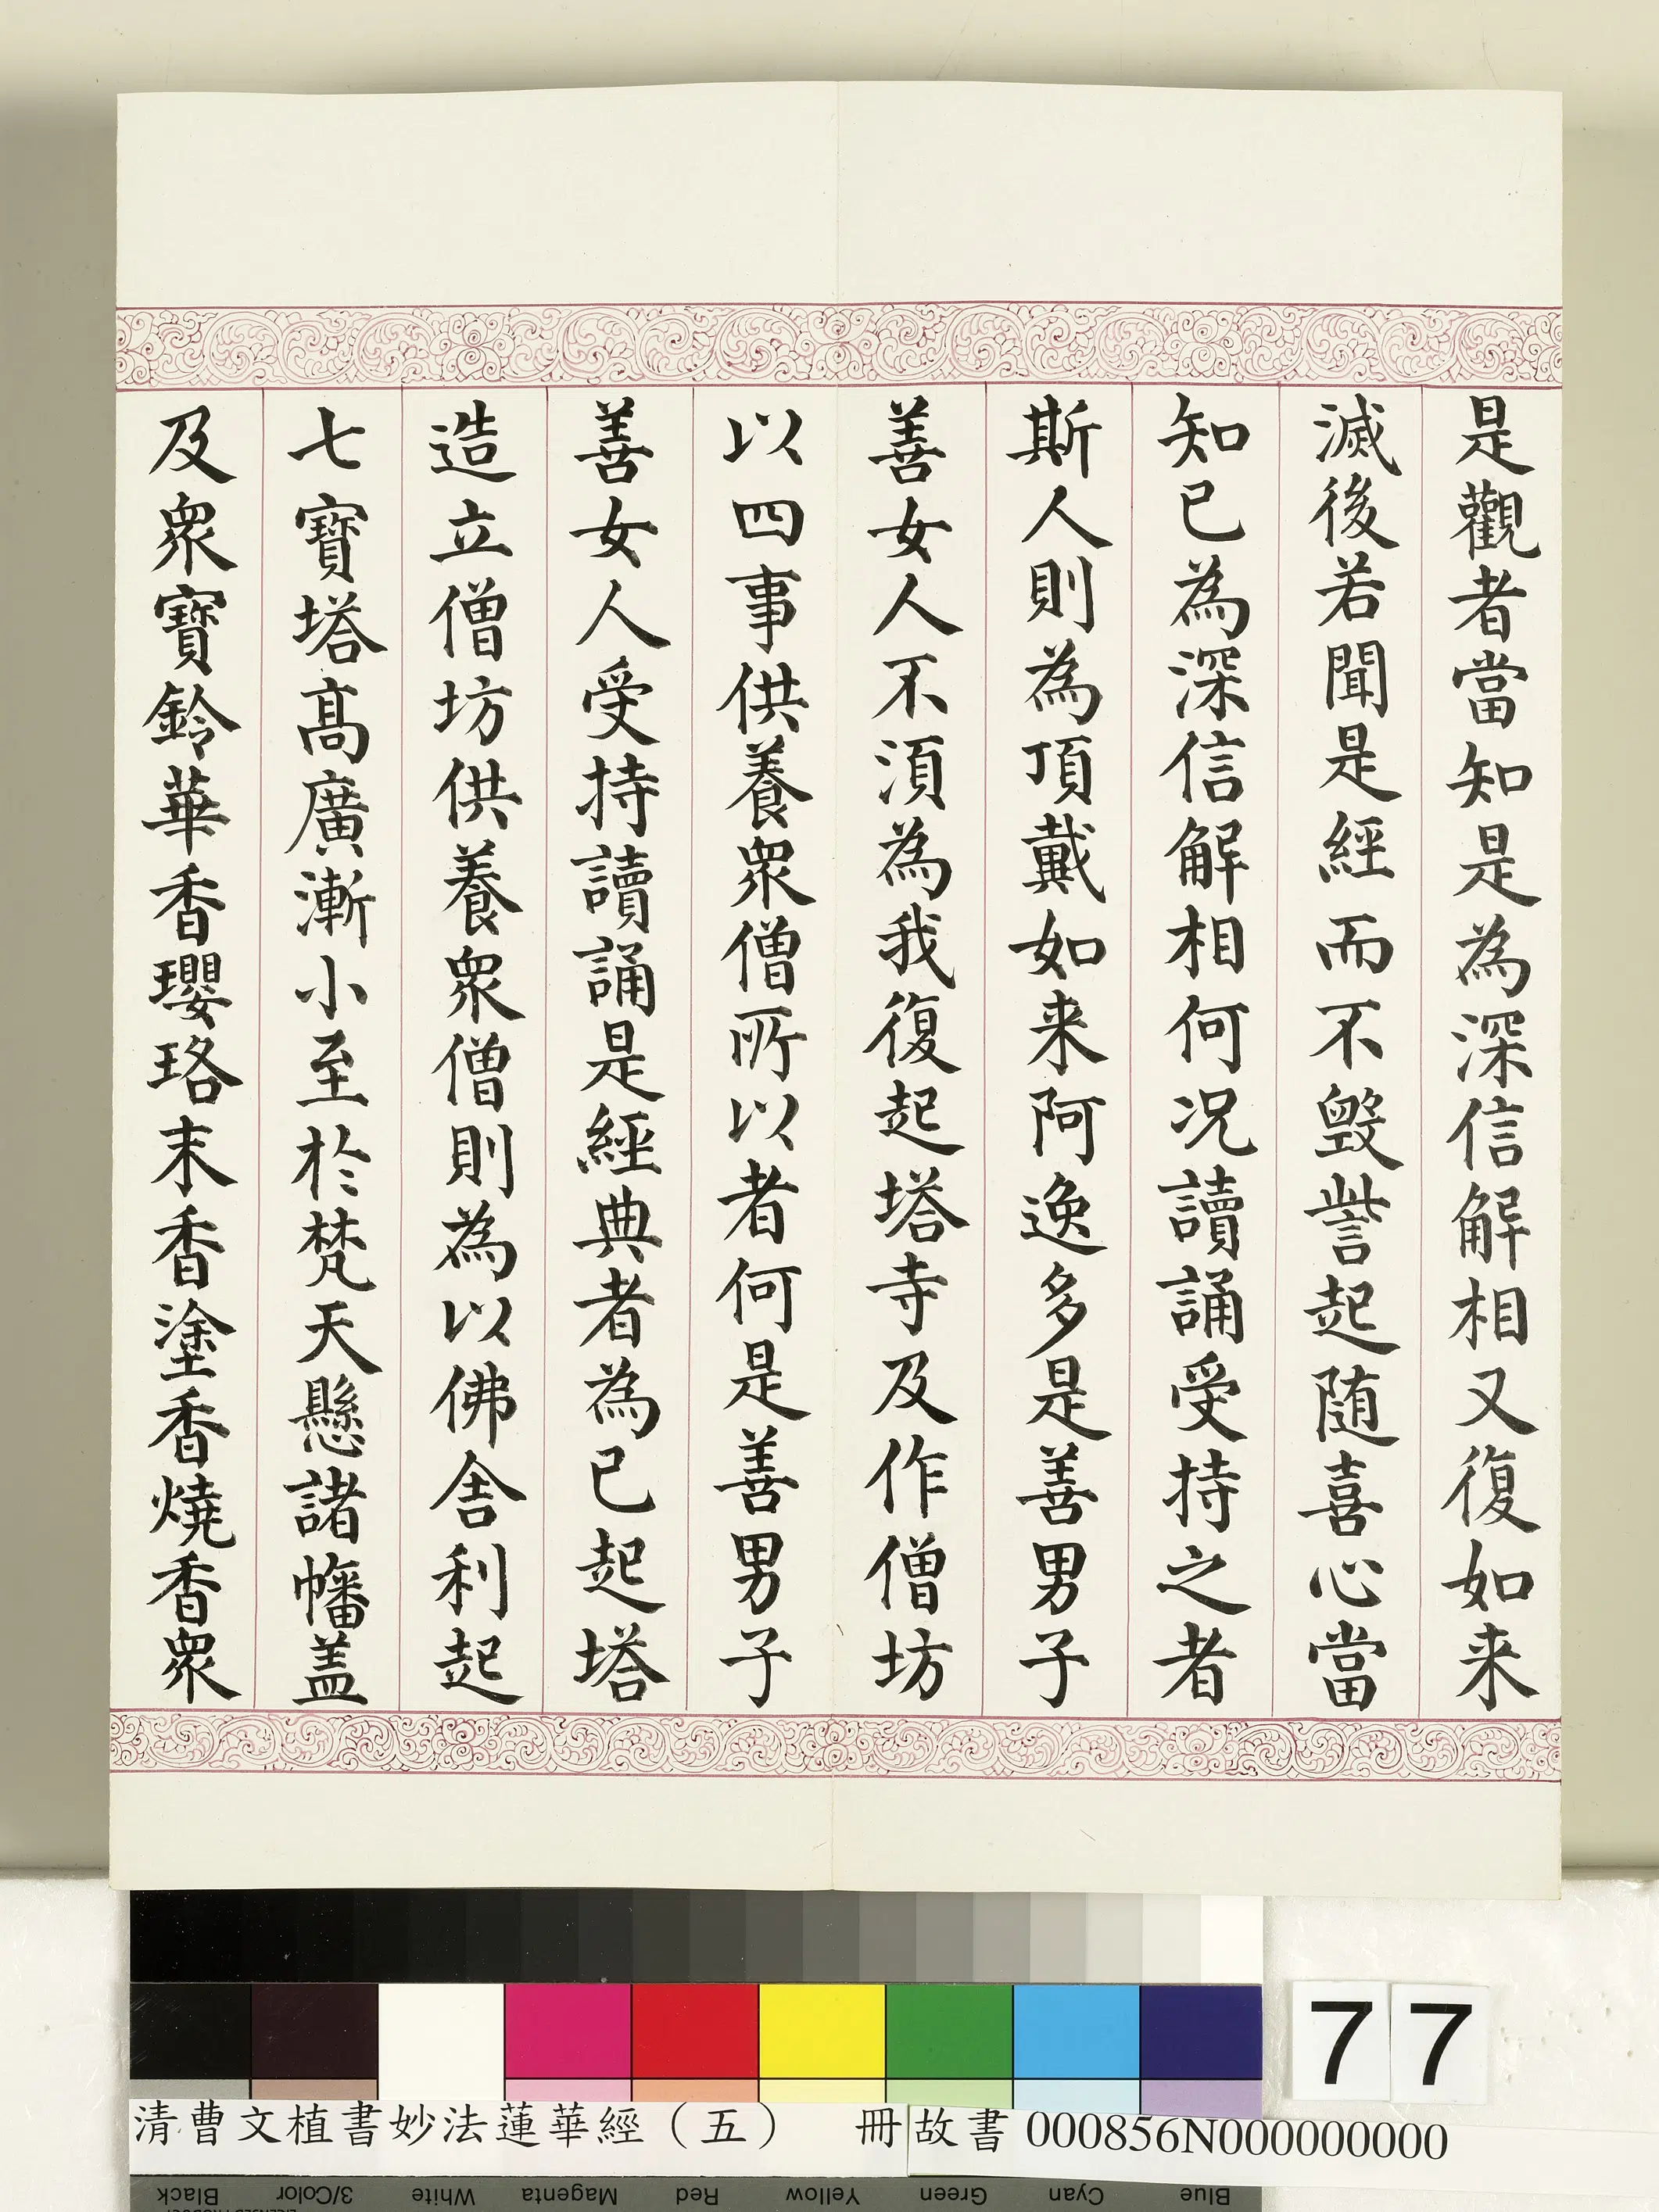 是觀者當知是為深信解相又復如来
滅後若聞是經而不毀訾起随喜心當
知已為深信解相何况讀誦受持之者
斯人則為頂戴如来阿逸多是善男子
善女人不湏為我復起塔寺及作僧坊
以四事供養衆僧所以者何是善男子
善女人受持讀誦是經典者為已起塔
造立僧坊供養衆僧則為以佛舍利起
七寶塔髙廣漸小至於梵天懸諸幡盖
及衆寶鈴華香瓔珞末香塗香燒香衆
77
清曹文植書妙法蓮華經（五） 冊 故書 000856N000000000
Black 3/Color White Magenta Red Yellow Green Cyan Blue